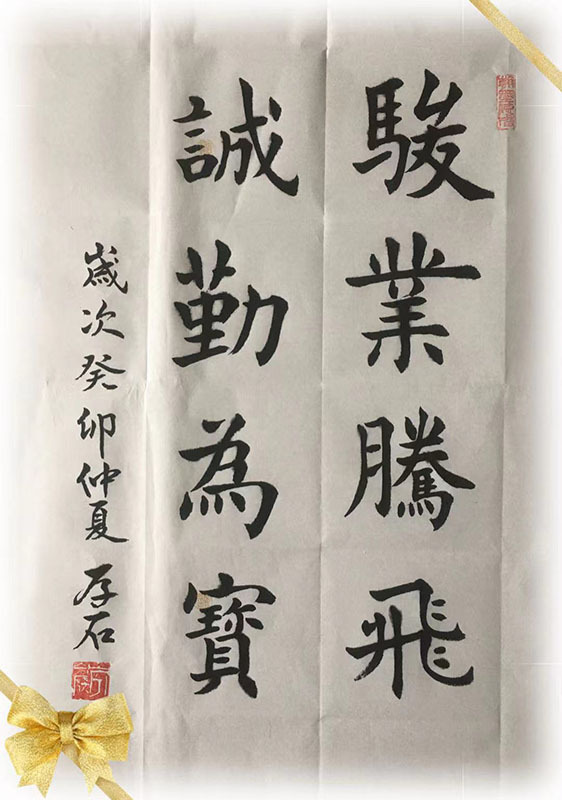 駿業騰飛
誠勤為寶
歲次癸卯仲夏 存石